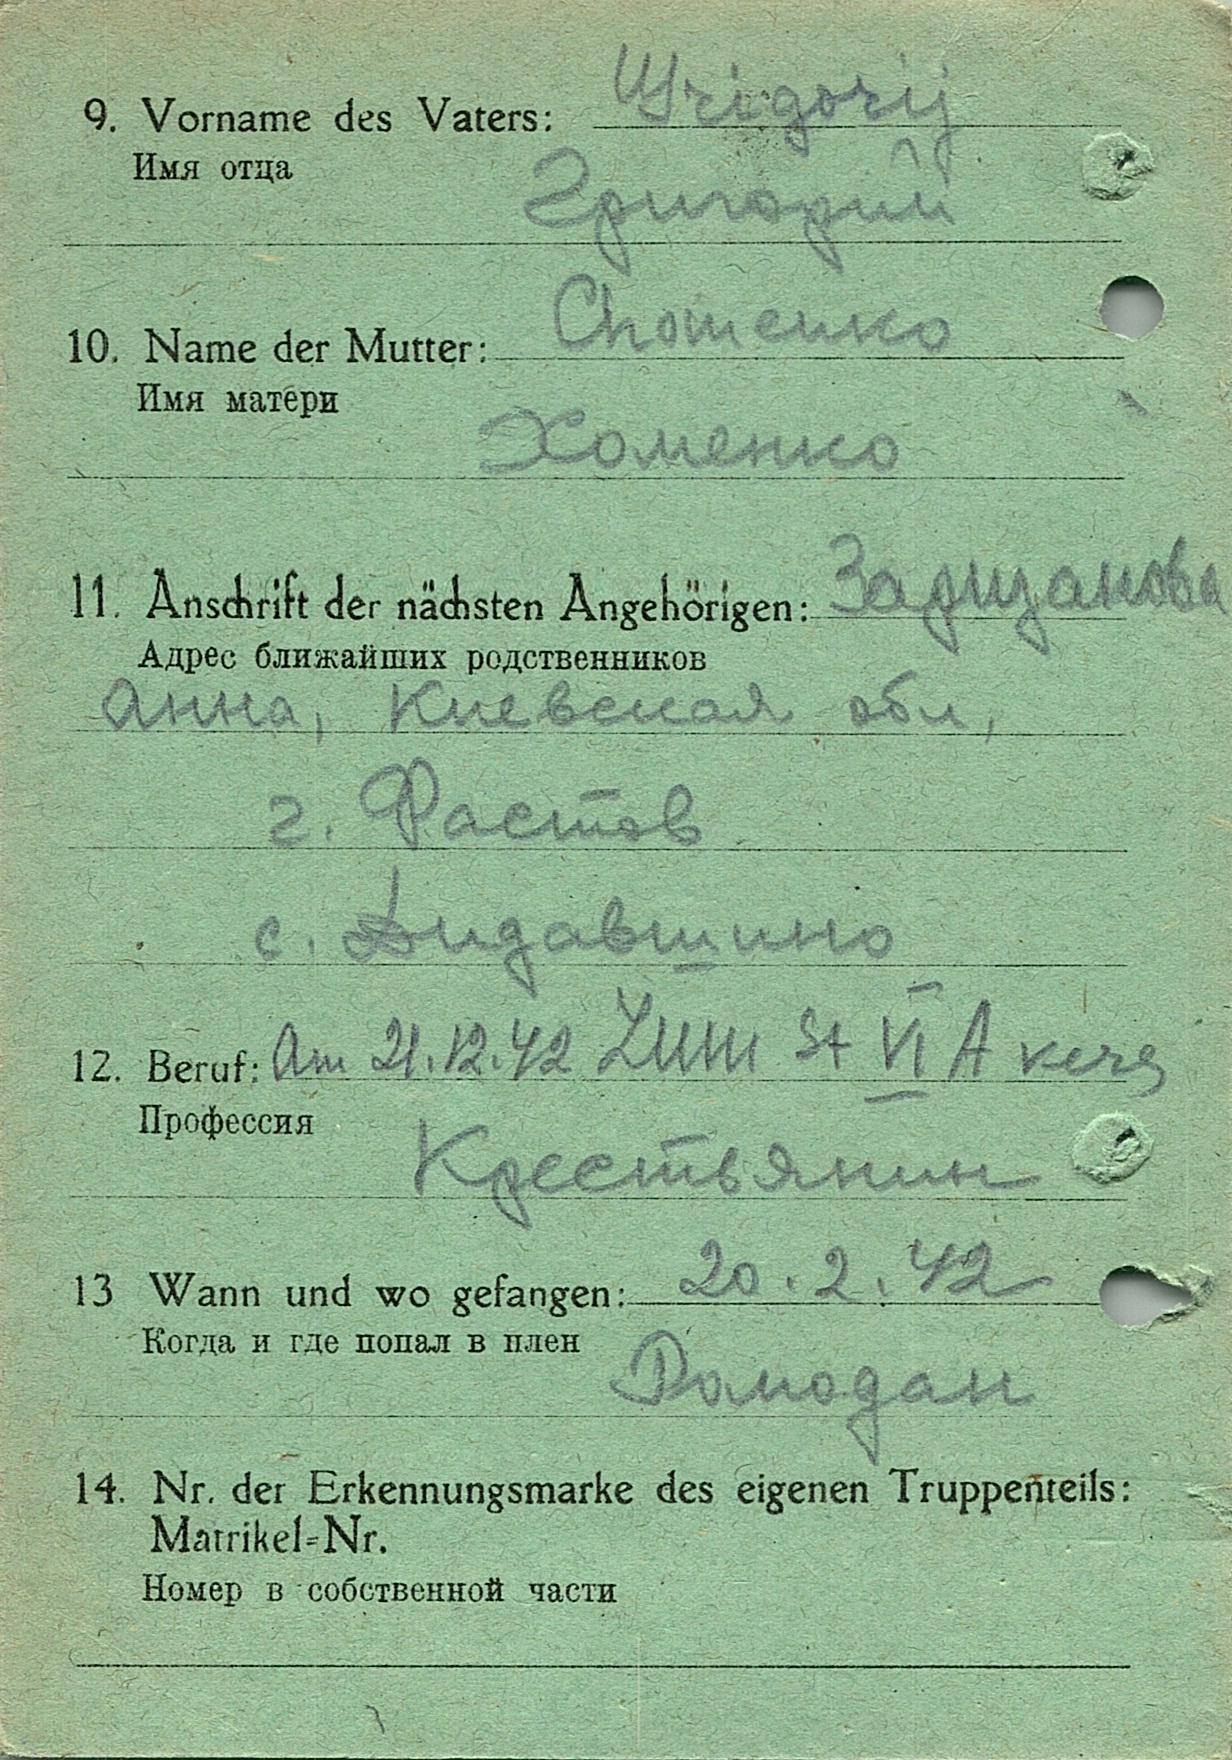 9. Vorname des Vaters: Grigorij
Имя отца
Григорий
10. Name der Mutter: Chomenko
Имя матери
Хоменко
11. Anschrift der nächsten Angehörigen:
Адрес ближайших родственников
Анна, Киевская обл,
г. Фастов
с. Дидавшино
12. Beruf: Am 21.12.42 zum St VI A
Профессия
Крестьянин
13 Wann und wo gefangen: 20.2.42
Когда и где попал в плен
Ромодан
14. Nr. der Erkennungsmarke des eigenen Truppenteils:
Matrikel=Nr.
Номер в собственной части